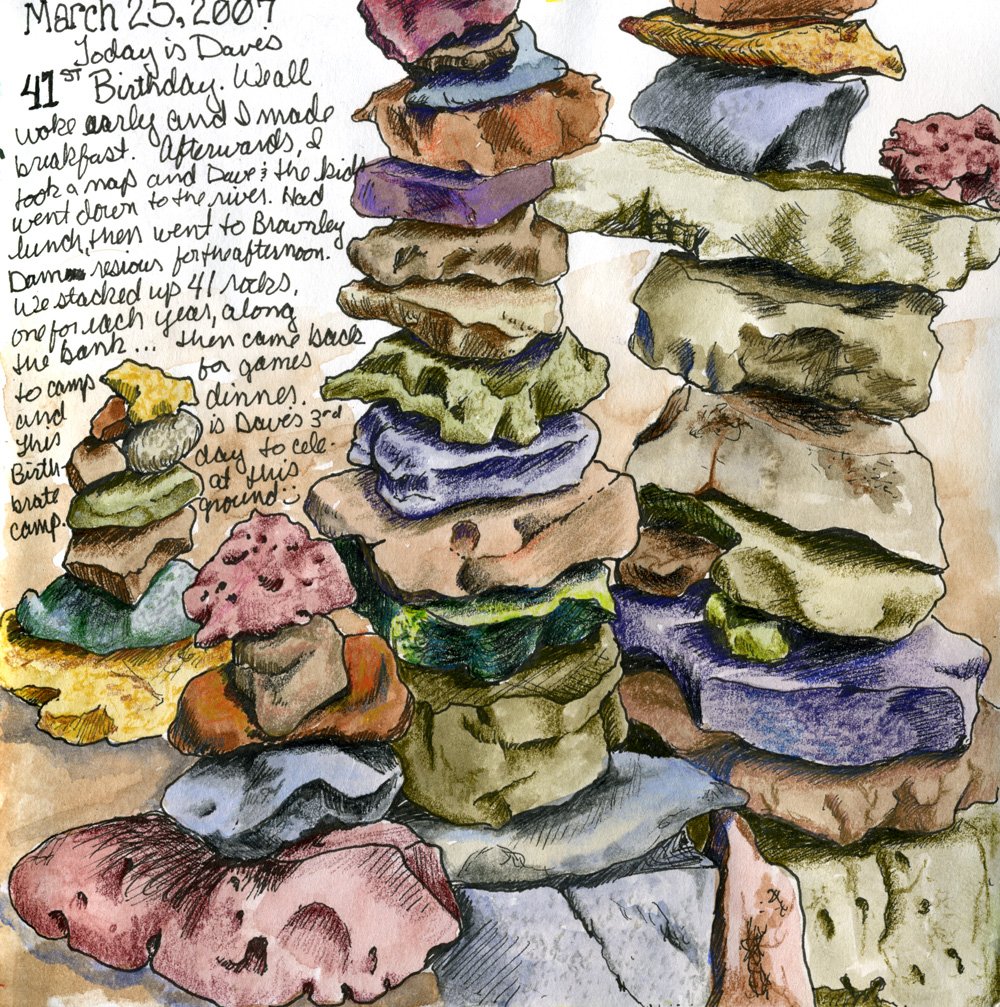 March 25, 2007
Today is Dave's
41ST Birthday. We all
woke early and I made
breakfast. Afterwards, I
took a nap and Dave & the kids
went down to the river. Had
lunch, then went to Brownley
Dam for the afternoon.
We stacked up 41 rocks,
one for each year, along
the bank... then came back
to camp for games
and dinner.
This is Dave's 3rd
Birth- day to cele-
brate at this
camp. ground :)